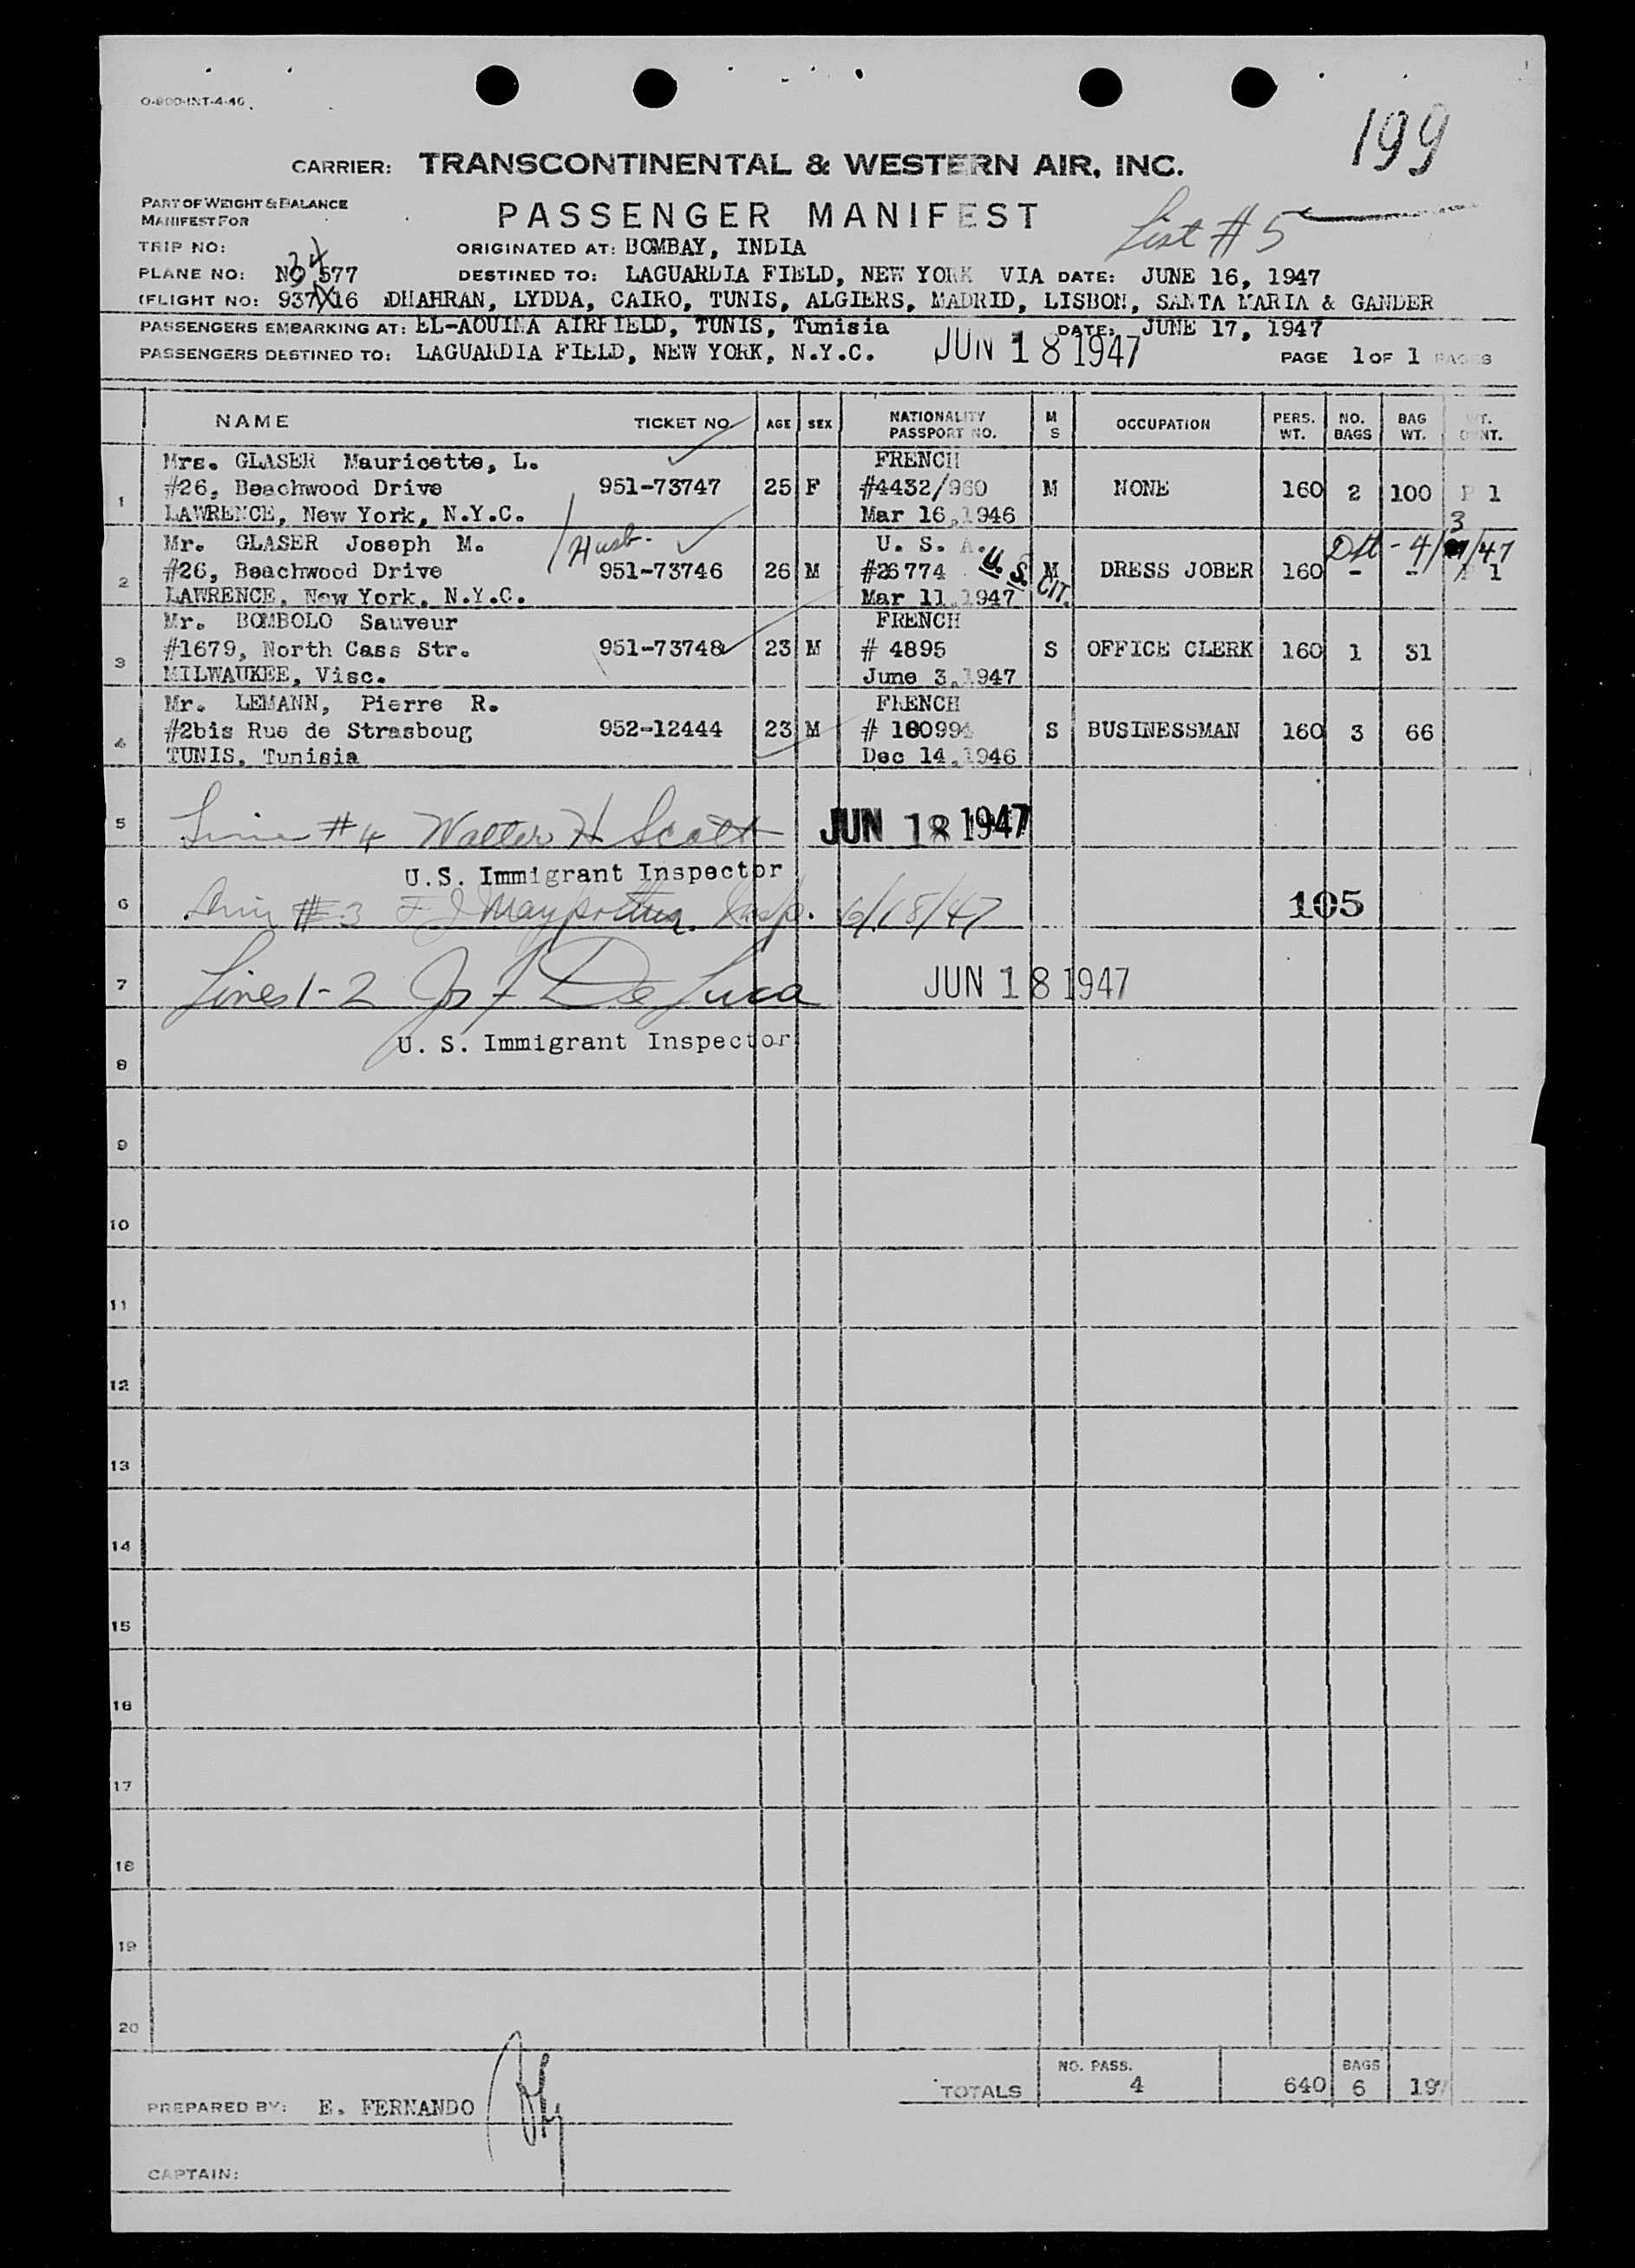 O-800-INT-4-46
199
CARRIER: TRANSCONTINENTAL & WESTERN AIR, INC.
PART OF WEIGHT & BALANCE
MANIFEST FOR
PASSENGER MANIFEST
List # 5
TRIP NO:
ORIGINATED AT: BOMBAY, INDIA
34
PLANE NO: 577
DESTINED TO: LAGUARDIA FIELD, NEW YORK VIA DATE: JUNE 16, 1947
FLIGHT NO: 937/X16 DHAHRAN, LYDDA, CAIRO, TUNIS, ALGIERS, MADRID, LISBON, SANTA MARIA & GANDER
PASSENGERS EMBARKING AT: EL-AOUINA AIRFIELD, TUNIS, Tunisia DATE: JUNE 17, 1947
PASSENGERS DESTINED TO: LAGUARDIA FIELD, NEW YORK, N.Y.C. JUN 18 1947 PAGE 1 OF 1 PAGES
NAME TICKET NO. AGE SEX NATIONALITY PASSPORT NO. M S OCCUPATION PERS. WT. NO. BAGS BAG WT. WT. CONT.
Mrs. GLASER Mauricette, L. FRENCH
1 #26, Beachwood Drive 951-73747 25 F #4432/960 M NONE 160 2 100 P 1
LAWRENCE, New York, N.Y.C. Mar 16,1946
Mr. GLASER Joseph M. / Husb. U. S. A. Dft - 4/3/47
2 #26, Beachwood Drive 951-73746 26 M #26774 U.S. CIT. M DRESS JOBER 160 - - P 1
LAWRENCE, New York, N.Y.C. Mar 11,1947
Mr. BOMBOLO Sauveur FRENCH
3 #1679, North Cass Str. 951-73748 23 M # 4895 S OFFICE CLERK 160 1 31
MILWAUKEE, Visc. June 3,1947
Mr. LEMANN, Pierre R. FRENCH
4 #2bis Rue de Strasboug 952-12444 23 M # 160994 S BUSINESSMAN 160 3 66
TUNIS, Tunisia Dec 14,1946
5 Line #4 Walter H Scott JUN 18 1947
U.S. Immigrant Inspector
6 #3 Insp. 6/18/47 105
7 Lines 1-2 Jos F De Luca JUN 18 1947
U. S. Immigrant Inspector
8
9
10
11
12
13
14
15
16
17
18
19
20
TOTALS NO. PASS. 4 640 BAGS 6 197
PREPARED BY: E. FERNANDO
CAPTAIN: